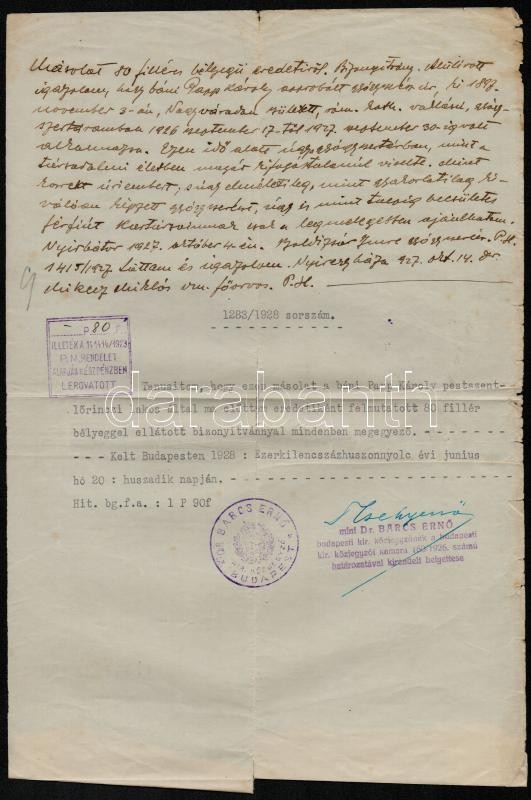 Másolat 80 filléres bélyegű eredetiről. Bizonyítvány. Alulírott
igazolom, hogy báni Papp Károly gyógyszerész dr, ki 1897
november 3-án, Nagyváradon született, róm. kath. vallású, gyógy-
szertáramban 1926 szeptember 17-től 1927 szeptember 30-ig volt
alkalmazva. Ezen idő alatt úgy gyógyszertárban, mint a
társadalmi életben magát kifogástalanul viselte. Mint
korrekt úriembert, úgy elméletileg, mint gyakorlatilag ki-
válóan képzett gyógyszerészt, úgy is mint becsületes
férfiút kartársaimnak csak a legmelegebben ajánlhatom.
Nyírbátor 1927. október 4-én. Boldizsár Imre gyógyszerész. P.H.
1415/927 Láttam és igazolom. Nyíregyháza 927. okt. 14. dr.
Mikecz Miklós vm. főorvos. P.H.
1283/1928 sorszám.
- P. 80 f.
ILLETÉK A
P. M. RENDELET
ALAPJÁN KÉSZPÉNZBEN
LEROVATOTT
Tanusitom, hogy ezen másolat a báni Papp Károly pestszent-
lőrinczi lakos által mo előttem eredetiként felmutatott 80 fillér
bélyeggel ellátott bizonyitvánnyal mindenben megegyező. - - - - - - -
- - - Kelt Budapesten 1928 : Ezerkilencszázhuszonnyolc évi junius
hó 20 : huszadik napján. - - - - - - -
Hit. bg.f.a. : 1 P 90f
BARCS ERNŐ
BUDAPEST
mint Dr. BARCS ERNŐ
budapesti kir. közjegyzőnek a budapesti
kir. közjegyzői kamara 160/1926. számú
határozatával kirendelt helyettese
darabanth.com